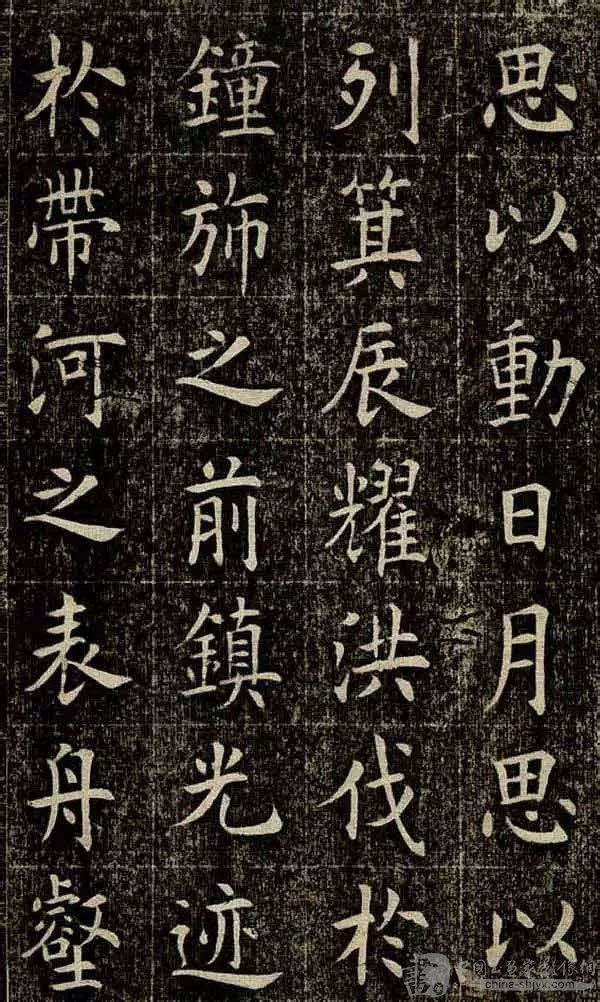 思以動日月思以
列箕辰耀洪伐於
鐘旆之前鎮光迹
於帶河之表舟壑
china-shjyx.com